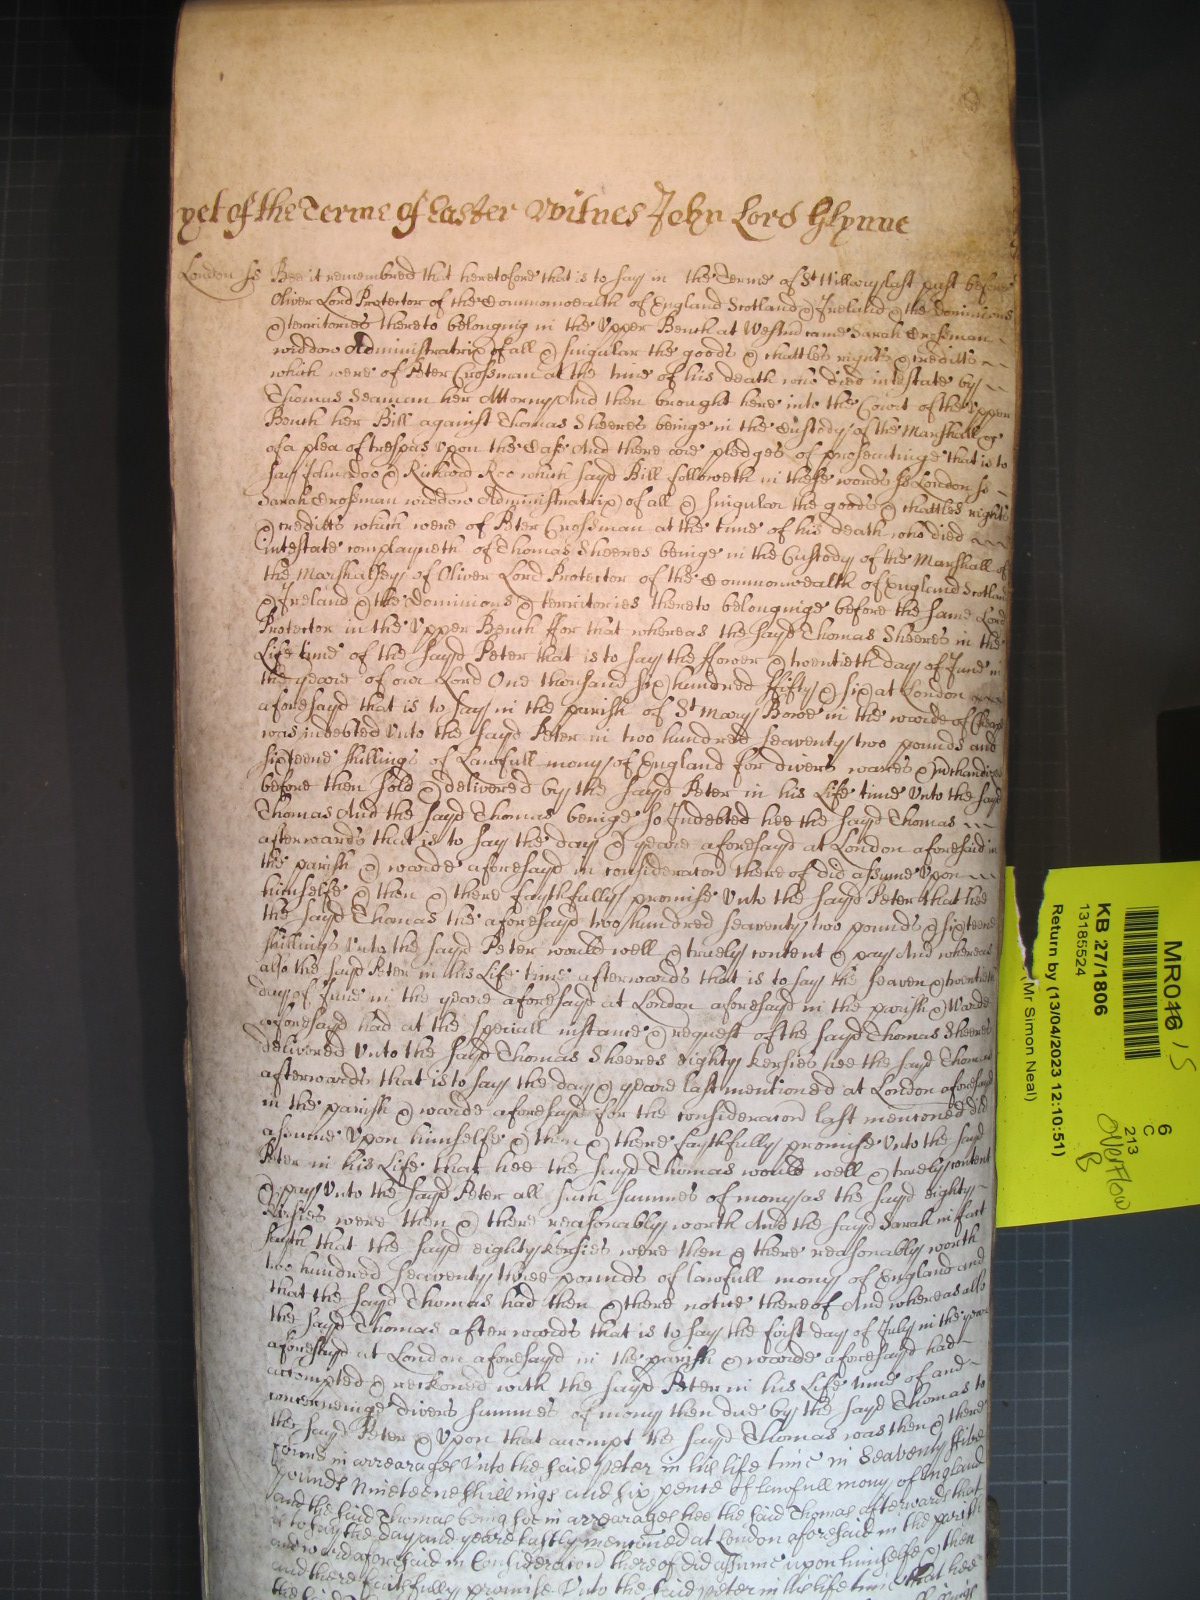 yet of the Terme of Easter Witnes John Lord Glynne
London ss Bee it remembred that heretofore that is to say in the Terme of St Hillary last past before
Oliver Lord Protector of the Commonwealth of England Scotland & Ireland & the Dominions
& territories thereto belonging in the Upper Bench at Westm came Sarah Crosman
widdow Administratrix of all & singular the goods & chattles rights & creditts
which were of Peter Crosman at the time of his death who died intestate by
Thomas Seaman her Attorny And then brought here into the Court of the Upper
Bench her Bill against Thomas Sheeres beinge in the Custody of the Marshall &c
of a plea of trespas upon the Case And there are pledges of prosecutinge that is to
say John Doo & Richard Roo which sayd Bill followeth in these words ss London ss
Sarah Crosman widdow Administratrix of all & singular the goods & chattles rights
& creditts which were of Peter Crosman at the time of his death who died
intestate complayneth of Thomas Sheeres beinge in the Custody of the Marshall of
the Marshalsey of Oliver Lord Protector of the Commonwealth of England Scotland
& Ireland & the Dominions & territories thereto belonginge before the same Lord
Protector in the Upper Bench ffor that whereas the sayd Thomas Sheeres in the
Life time of the sayd Peter that is to say the ffower & twentieth day of June in
the yeare of our Lord One thousand six hundred fifty & six at London
aforesayd that is to say in the parish of St Mary Bowe in the warde of Cheap
was indebted unto the sayd Peter in two hundred seaventy two pounds and
sixteene shillings of Lawfull mony of England for divers wares & mrchandizes
before then sold & delivered by the sayd Peter in his Life time unto the sayd
Thomas And the sayd Thomas beinge so Indebted hee the sayd Thomas
afterwards that is to say the day & yeare aforesayd at London aforesaid in
the parish & warde aforesayd in consideracon thereof did assume upon
himselfe & then & there faythfully promise unto the sayd Peter that hee
the sayd Thomas the aforesayd two hundred seaventy two pounds & sixteene
shillings unto the sayd Peter would well & truely content & pay And whereas
also the sayd Peter in his Life time afterwards that is to say the seaven & twentieth
day of June in the yeare aforesayd at London aforesayd in the parish & Warde
aforesayd had at the speciall instance & request of the sayd Thomas Sheeres
delivered unto the sayd Thomas Sheeres eighty kersies hee the sayd Thomas
afterwards that is to say the day & yeare last mentioned at London aforesayd
in the parish & warde aforesayd for the consideracon last mencioned did
assume upon himselfe & then & there faythfully promise unto the sayd
Peter in his Life that hee the sayd Thomas would well & truely content
& pay unto the sayd Peter all such summes of mony as the sayd eighty
kersies were then & there reasonably worth And the sayd Sarah in fact
sayth that the sayd eighty kersies were then & there reasonably worth
two hundred seaventy three pounds of lawfull mony of England and
that the sayd Thomas had then & there notice thereof And whereas also
the sayd Thomas afterwards that is to say the first day of July in the yeare
aforesayd at London aforesayd in the parish & warde aforesayd had
accompted & reckoned with the sayd Peter in his Life time of and
concerneinge divers summes of mony then due by the sayd Thomas to
the sayd Peter & upon that accompt the sayd Thomas was then & there
found in arrearages unto the said Peter in his life time in Seaventy ffive
pounds Nineteene shillings and six pence of lawfull mony of England
and the said Thomas being soe in arrearages hee the said Thomas afterwards that
is to say the day and yeare lastly mencioned at London aforesaid in the parish
and ward aforesaid in Consideracon thereof did assume upon himselfe & then
and there faithfully promise unto the said Peter in his life time that hee
MR046 15
KB 27/1806
13185524
Return by (13/04/2023 12:10:51)
(Mr Simon Neal)
6
C
213
overflow
B